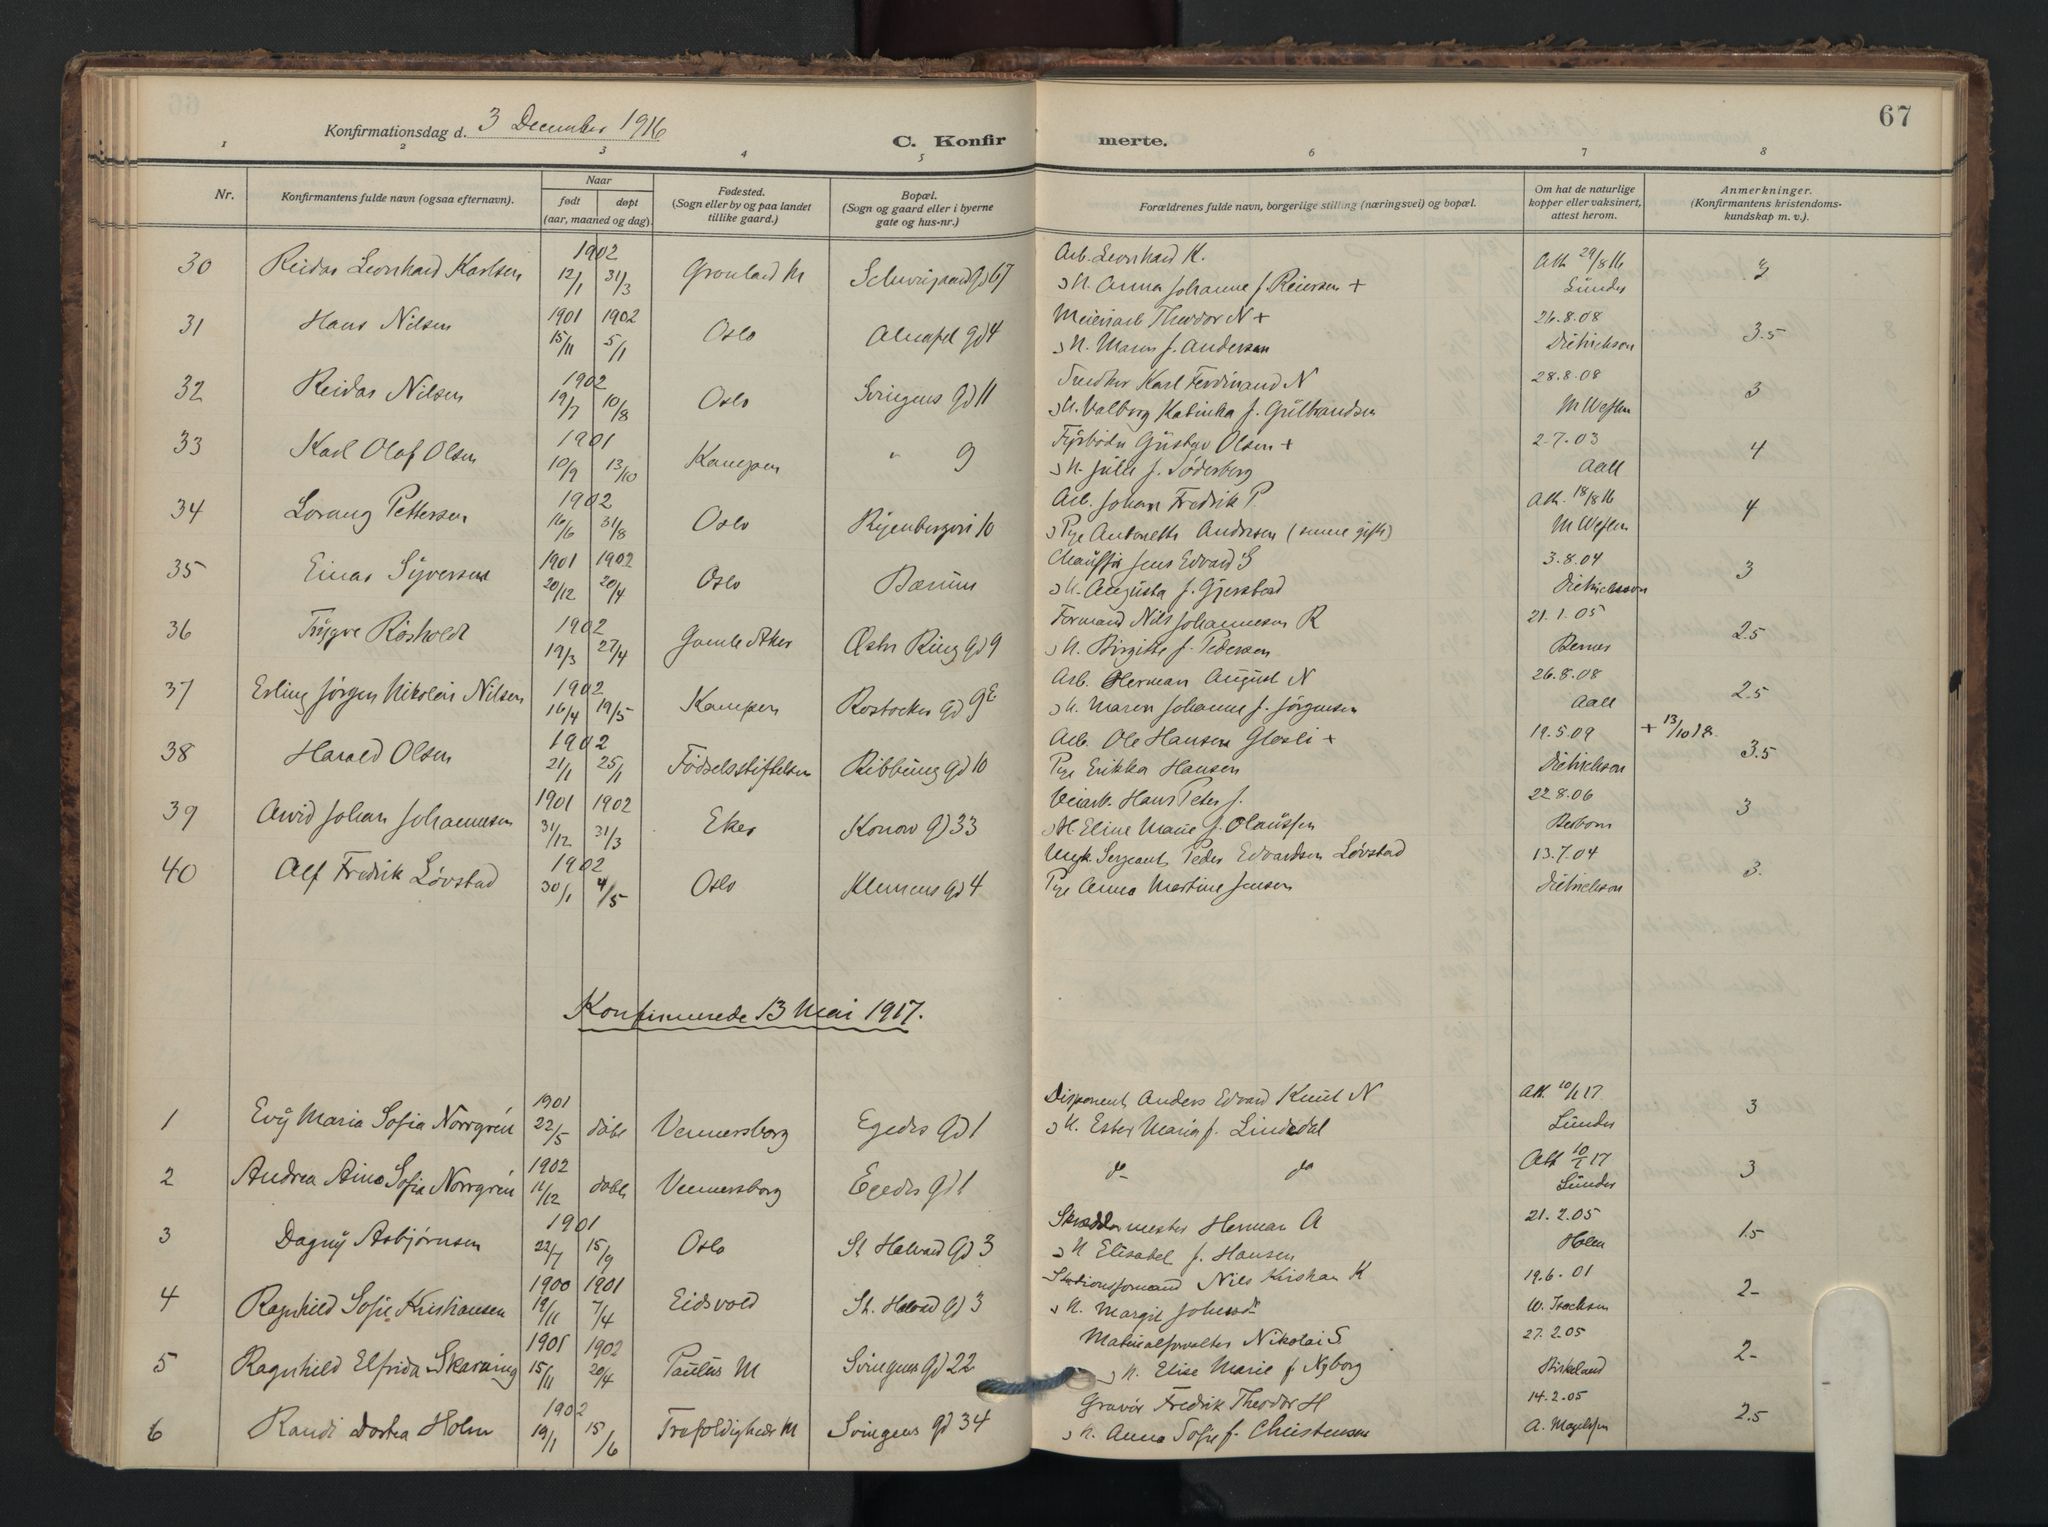 67
Konfirmationsdag d. 3 December 1916
C. Konfirmerte.
1 2 3 4 5 6 7 8
Nr.
Konfirmantens fulde navn (ogsaa efternavn).
Naar
født døpt
(aar, maaned og dag).
Fødested.
(Sogn eller by og paa landet
tillike gaard.)
Bopæl.
(Sogn og gaard eller i byerne
gate og hus-nr.)
Forældrenes fulde navn, borgerlige stilling (næringsvei) og bopæl.
Om hat de naturlige
kopper eller vaksinert,
attest herom.
Anmerkninger.
(Konfirmantens kristendoms-
kundskap m. v.).
30 Reidar Leonhard Karlsen 1902 12/1 31/3 Grønland M Schweigaard gd 67 Arb. Leonhard K. Att 29/8 16 3
H. Anna Johanne f. Reiersen + Lunder
31 Hans Nilsen 1901 15/11 1902 5/1 Oslo gd 4 Meieriarb Theodor N + 26.8.08 3.5
H. Maren f. Andersen Dietrichson
32 Reidar Nilsen 1902 19/7 10/8 Oslo Svingens gd 11 Snedker Karl Ferdinand N 28.8.08 3
H. Valborg Katinka f. Gulbrandsen
33 Karl Olaf Olsen 1901 10/9 13/10 Kampen " 9 Fyrbøder Gustav Olsen + 2-7.03 4
H. Julie f. Søderberg Aall
34 Lorang Pettersen 1902 16/6 31/8 Oslo 10 Arb. Johan Fredrik P. Att. 18/8 16 4
Pge Antonette Andersen (senere gift)
35 Einar Syversen 1901 20/12 1902 20/4 Oslo Bærum Chauffør Jens Edvard S 3.8.04 3
H. Augusta f. Dietrichson
36 Trygve Røsholdt 1902 19/3 27/4 Gamle Aker Østre Ring gd 9 Formand Nils Johannesen R 21.1.05 2.5
H. Birgitte f. Pedersen Berner
37 Erling Jørgen Nikolai Nilsen 1902 16/4 19/5 Kampen Rostocker gd 9 E Arb. Herman August N 26.8.08 2.5
H. Maren Johanne f. Jørgensen Aall
38 Harald Olsen 1902 21/1 25/1 Fødselsstiftelsen Ribbung gd 10 Arb. Ole Hansen Glosli + 19.5.09 + 13/10 18. 3.5
Pge Erikka Hansen Dietrichson
39 Arvid Johan Johannesen 1901 31/12 1902 31/3 Eker Konow gd 33 Veiarb. Hans Peter J. 22 8.06 3
H. Eline Marie f. Olaussen
40 Alf Fredrik Løvstad 1902 30/1 4/5 Oslo Klemens gd 4 Ungk. Sergeant Peder Edvardsen Løvstad 13.7.04 3.
Pge Anna Martine Jensen Dietrichson
Konfirmerede 13 Mai 1917.
1 Evy Maria Sofia Norrgrén 1901 22/5 døbt Vennersborg Egedes gd 1 Disponent Anders Edvard Knut N Att 10/1 17. 3
H. Ester Maria f. Lindedal Lunder
2 Andrea Aina Sofia Norrgrén 1902 11/12 døbt Vennersborg Egedes gd 1 do do Att 10/1 17 3
Lunder
3 Dagny Asbjørnsen 1901 22/7 15/9 Oslo St Halvard gd 3 Skreddermester Herman A 21.2.05 1.5
H Elisabet f. Hansen Holen
4 Ragnhild Sofie Kristiansen 1900 19/11 1901 7/4 Eidsvold St. Halvard gd 3 Stationsformand Nils Kristian K 19.6.01 2-
H. Margit W. Isachsen
5 Ragnhild Elfrida Skaraing 1901 15/11 1902 20/4 Paulus M Svingens gd 22 Materialforvalter Nikolai S. 27.2.05 2-
H. Elise Marie f Nyborg Birkeland
6 Randi Dortea Holm 1902 19/1 15/6 Trefoldigheds M Svingens gd 34 Gravør Fredrik Theodor H 14.2.05 2.5
H. Anna Sofie f. Christensen A. Magelssen